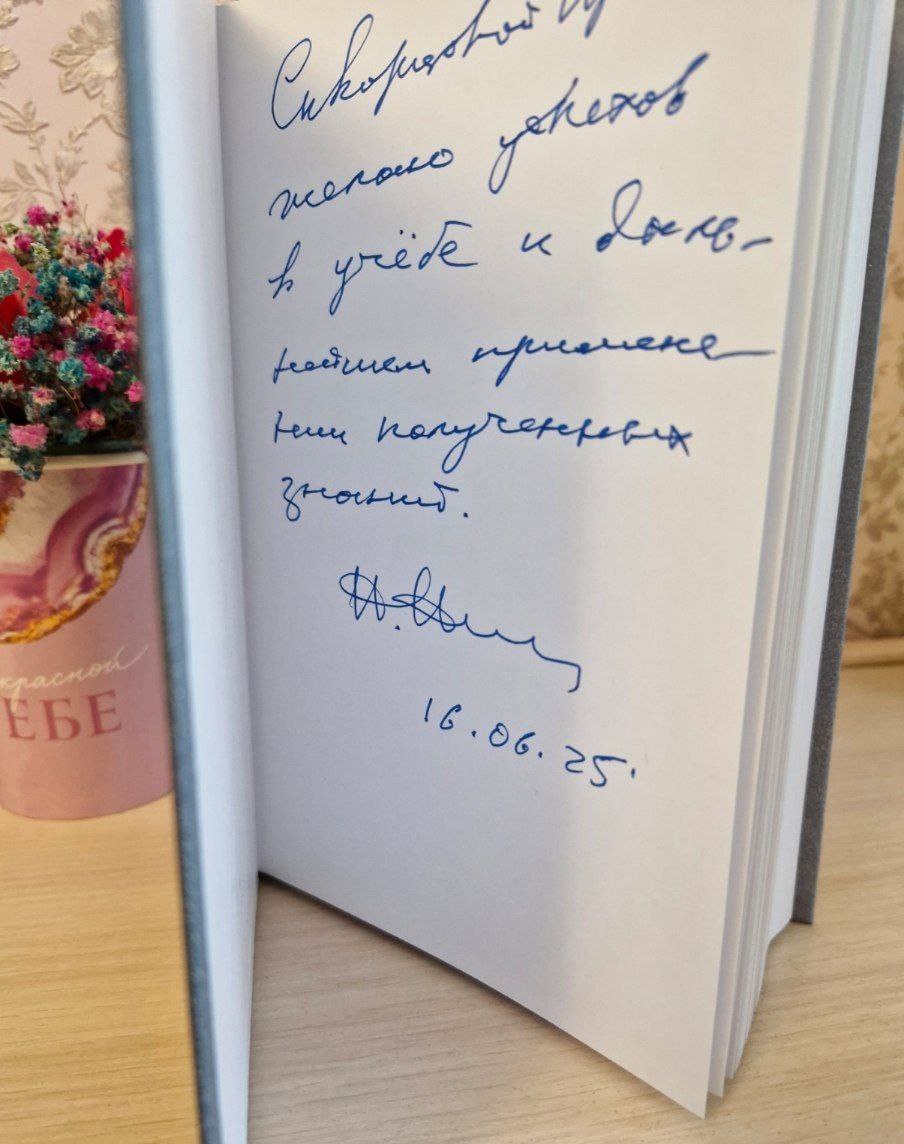 желаю успехов
в учёбе и даль-
нейшем примене
нии полученных
знаний.
16.06.25.
красной
ЕБЕ